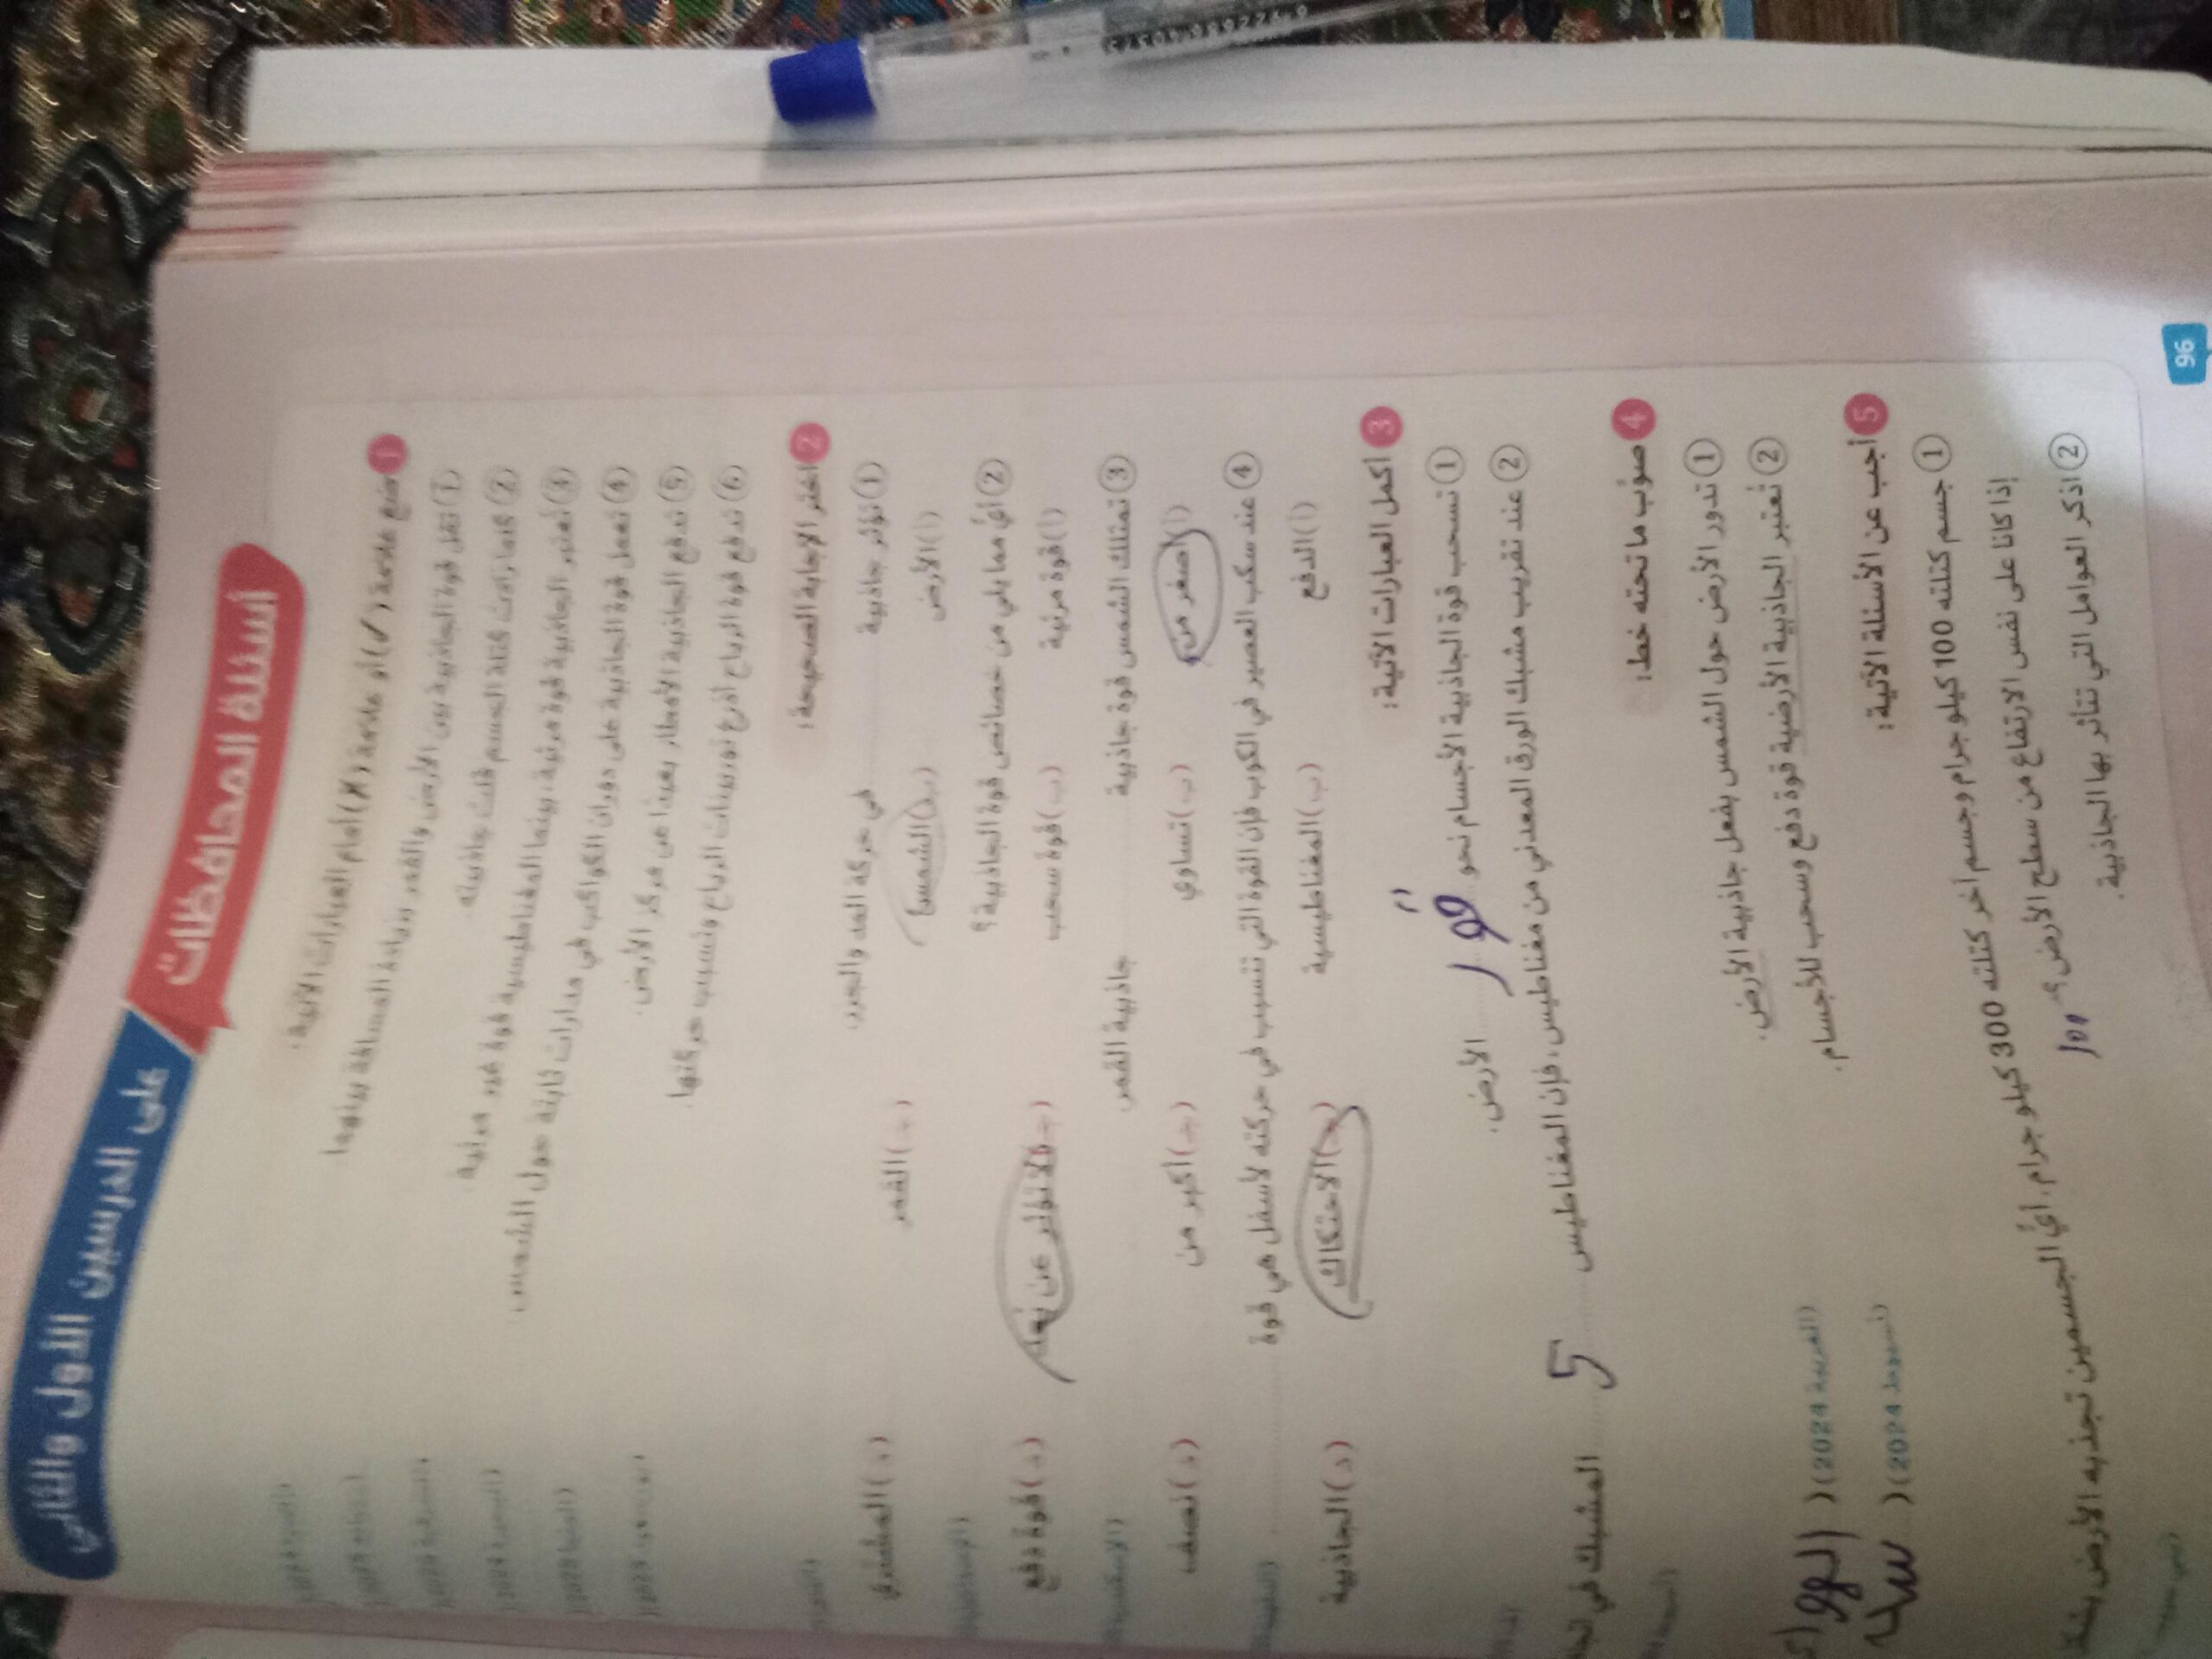 أسئلة المحافظات
على الدرسين الأول والثاني
1 ضع علامة (✓) أو علامة (✗) أمام العبارات الآتية:
1 تقل قوة الجاذبية بين الأرض والقمر بزيادة المسافة بينهما
2 كلما زادت كتلة الجسم قلت جاذبيته.
3 تُعتبر الجاذبية قوة مرئية، بينما المغناطيسية قوة غير مرئية.
4 تعمل قوة الجاذبية على دوران الكواكب في مدارات ثابتة حول الشمس
5 تدفع الجاذبية الأمطار بعيدًا عن مركز الأرض.
6 تدفع قوة الرياح أذرع توربينات الرياح وتسبب حركتها.
2 اختر الإجابة الصحيحة:
1 تؤثر جاذبية ............ في حركة المد والجزر.
(أ) الأرض (ب) الشمس (جـ) القمر (د) المشتري
2 أيٌّ مما يلي من خصائص قوة الجاذبية؟
(أ) قوة مرئية (ب) قوة سحب (جـ) لا تؤثر عن بُعد (د) قوة دفع
3 تمتلك الشمس قوة جاذبية ............ جاذبية القمر.
(أ) أصغر من (ب) تساوي (جـ) أكبر من (د) نصف
4 عند سكب العصير في الكوب فإن القوة التي تتسبب في حركته لأسفل هي قوة ............
(أ) الدفع (ب) المغناطيسية (جـ) الاحتكاك (د) الجاذبية
3 أكمل العبارات الآتية:
1 تسحب قوة الجاذبية الأجسام نحو ............ الأرض.
2 عند تقريب مشبك الورق المعدني من مغناطيس، فإن المغناطيس ............ المشبك في
4 صوِّب ما تحته خط:
1 تدور الأرض حول الشمس بفعل جاذبية الأرض. ( ) (الغربية 2024)
2 تُعتبر الجاذبية الأرضية قوة دفع وسحب للأجسام. ( ) (أسيوط 2024)
5 أجب عن الأسئلة الآتية:
1 جسم كتلته 100 كيلو جرام وجسم آخر كتلته 300 كيلو جرام، أيُّ الجسمين تجذبه الأرض
إذا كانا على نفس الارتفاع من سطح الأرض؟
2 اذكر العوامل التي تتأثر بها الجاذبية.
96